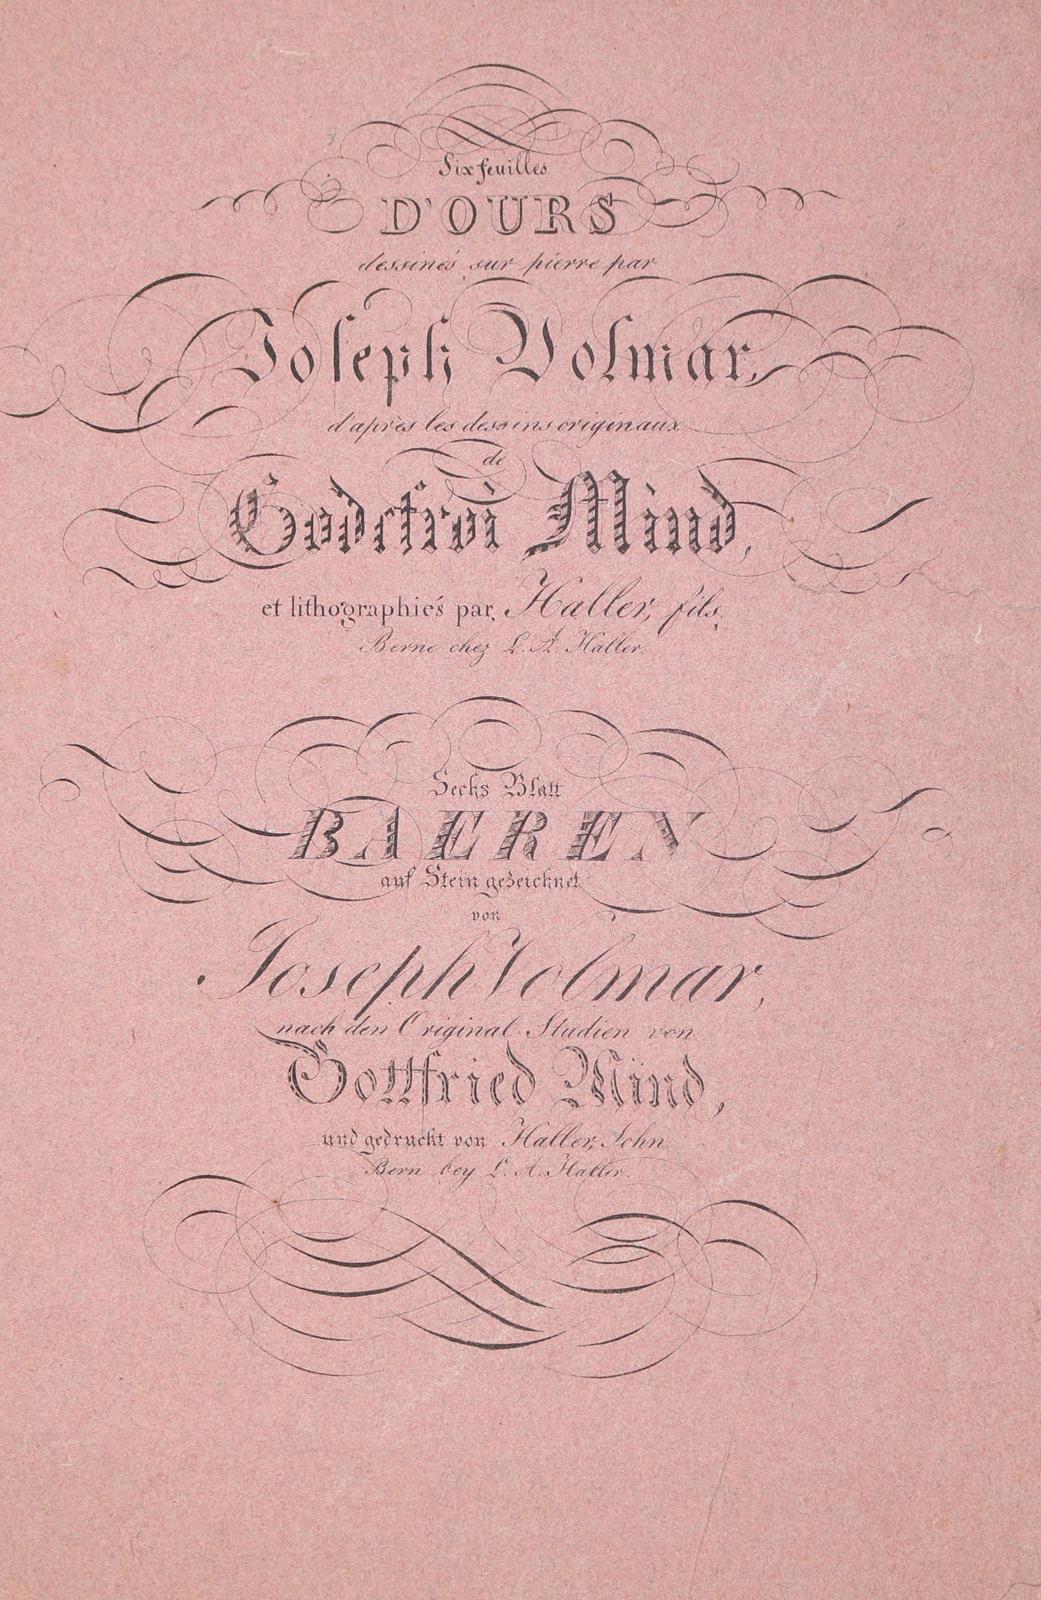 Six feuilles
D'OURS
dessinés sur pierre par
Joseph Volmar,
d'après les dessins originaux
de
Godefroi Mind,
et lithographiés par Haller, fils.
Berne chez L. A. Haller.
Sechs Blatt
BAEREN
auf Stein gezeichnet
von
Joseph Volmar,
nach den Original-Studien von
Gottfried Mind,
und gedruckt von Haller, Sohn.
Bern bey L. A. Haller.